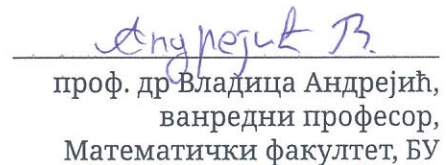 Андрејић В.
проф. др Владица Андрејић,
ванредни професор,
Математички факултет, БУ